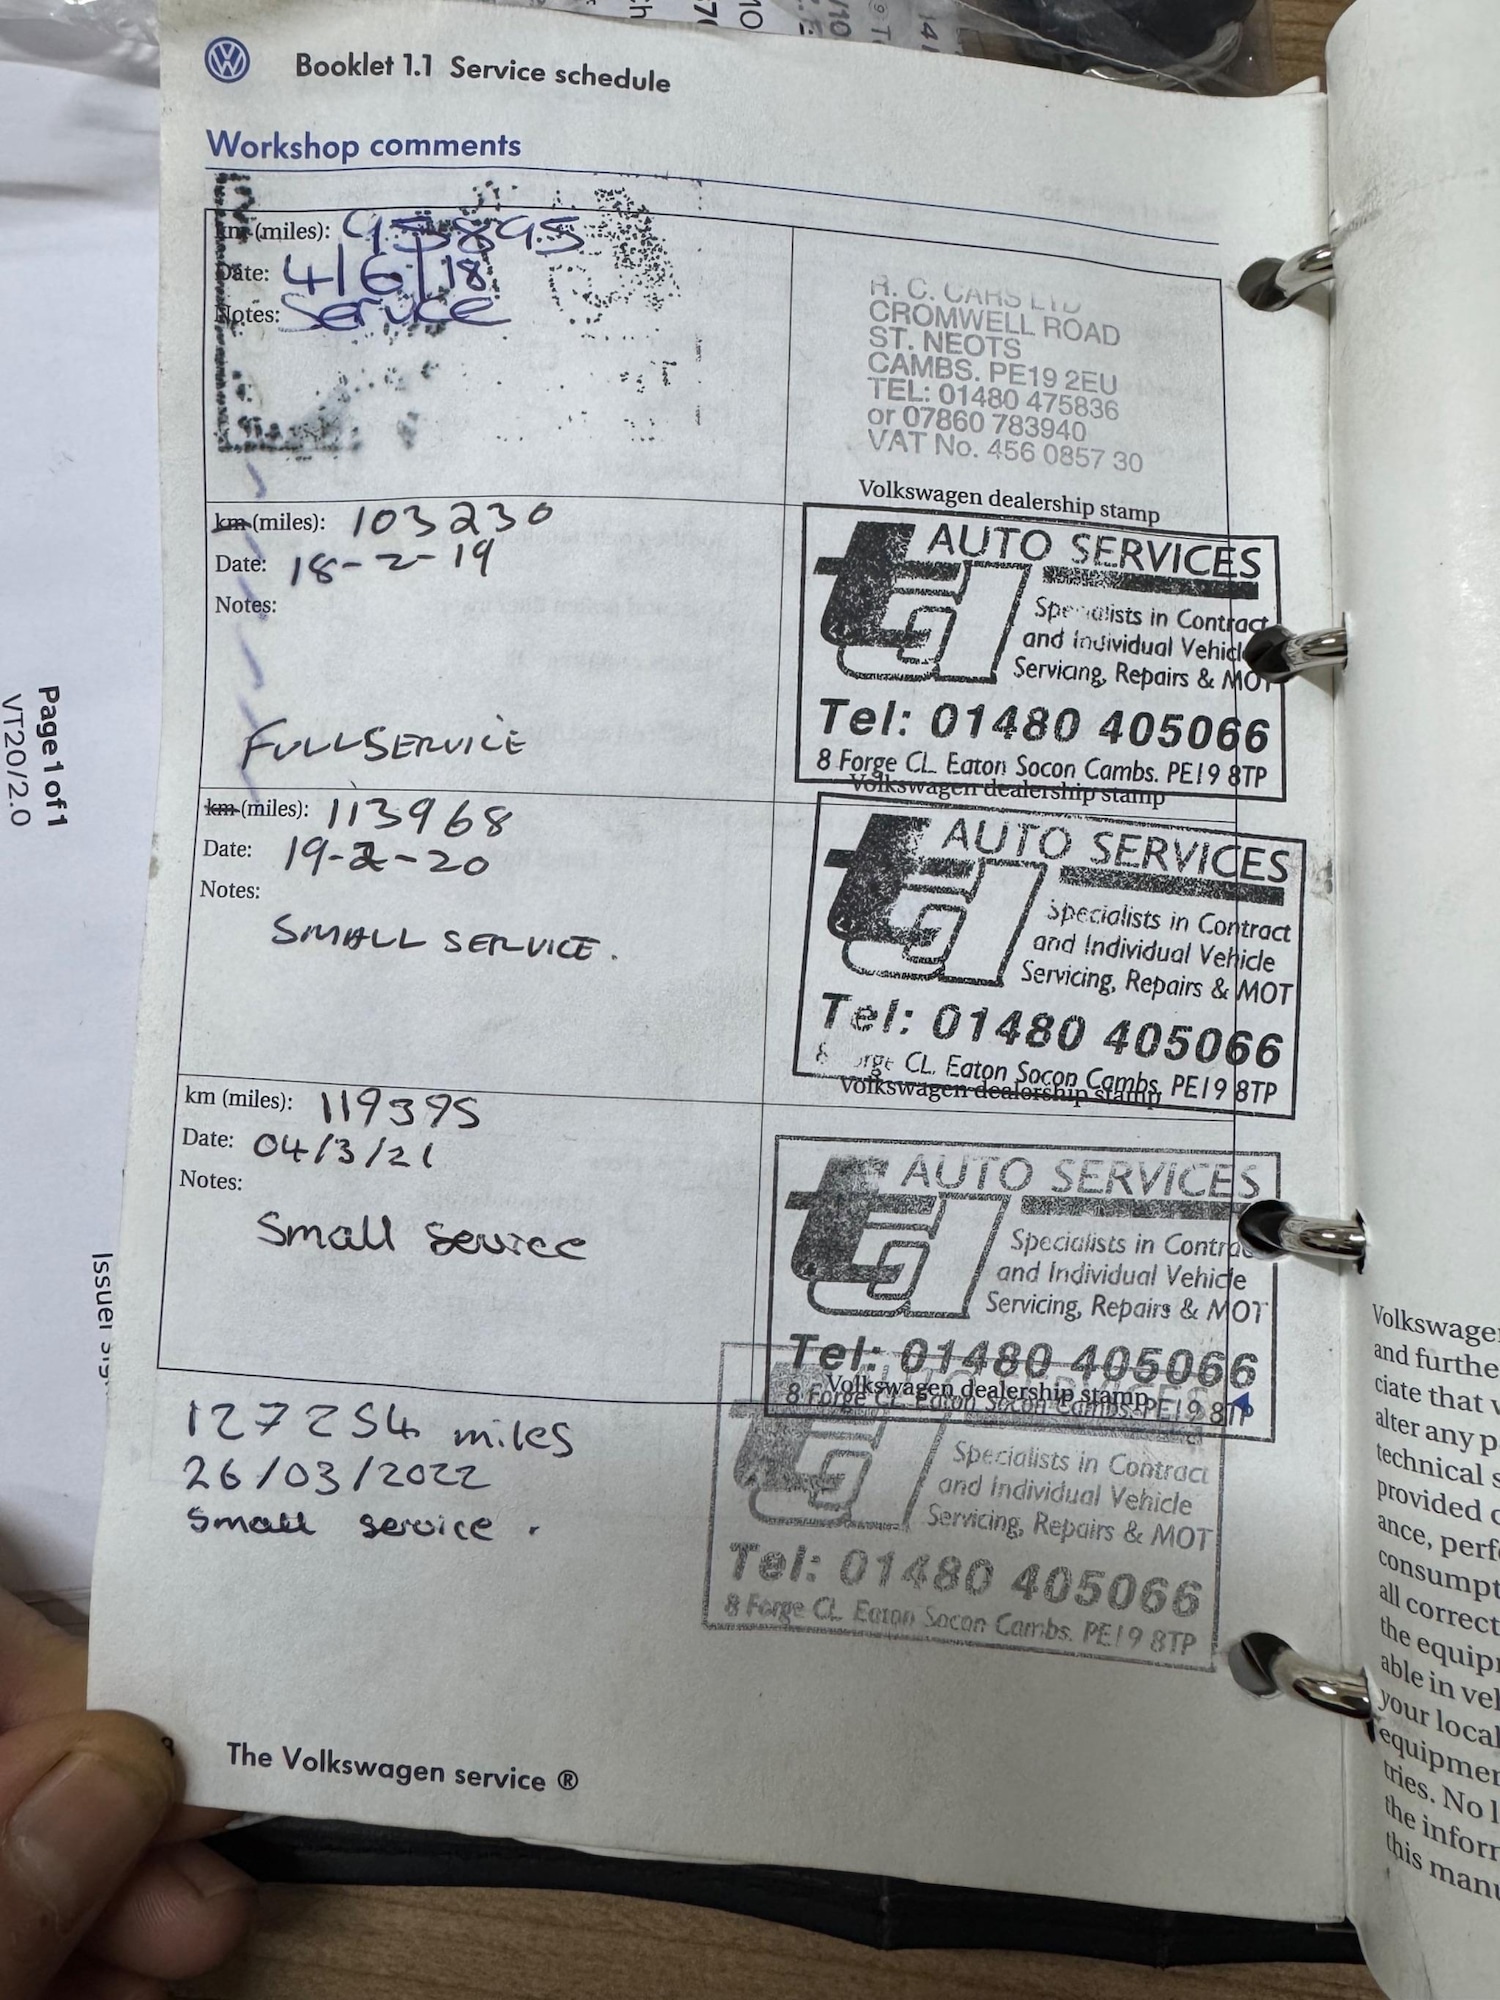 Booklet 1.1 Service schedule
Workshop comments
km (miles): 95895
Date: 4/6/18
Notes: Service
R. C. CARS LTD
CROMWELL ROAD
ST. NEOTS
CAMBS. PE19 2EU
TEL: 01480 475836
or 07860 783940
VAT No. 456 0857 30
Volkswagen dealership stamp
km (miles): 103230
Date: 18-2-19
Notes:
FULL SERVICE
AUTO SERVICES
Specialists in Contract
and Individual Vehicle
Servicing, Repairs & MOT
Tel: 01480 405066
8 Forge CL. Eaton Socon Cambs. PE19 8TP
Volkswagen dealership stamp
km (miles): 113968
Date: 19-2-20
Notes:
SMALL SERVICE.
AUTO SERVICES
Specialists in Contract
and Individual Vehicle
Servicing, Repairs & MOT
Tel: 01480 405066
8 Forge CL. Eaton Socon Cambs. PE19 8TP
Volkswagen dealership stamp
km (miles): 119395
Date: 04/3/21
Notes:
Small Service
AUTO SERVICES
Specialists in Contract
and Individual Vehicle
Servicing, Repairs & MOT
Tel: 01480 405066
8 Forge CL. Eaton Socon Cambs. PE19 8TP
Volkswagen dealership stamp
127254 miles
26/03/2022
Small service.
Specialists in Contract
and Individual Vehicle
Servicing, Repairs & MOT
Tel: 01480 405066
8 Forge CL. Eaton Socon Cambs. PE19 8TP
The Volkswagen service ®
Page 1 of 1
VT20/2.0
Issuer
Volkswagen
and furthe
ciate that
alter any p
technical s
provided
ance, perf
consumpt
all correct
the equip
able in vel
your local
equipmen
tries. No l
the inforn
this manu